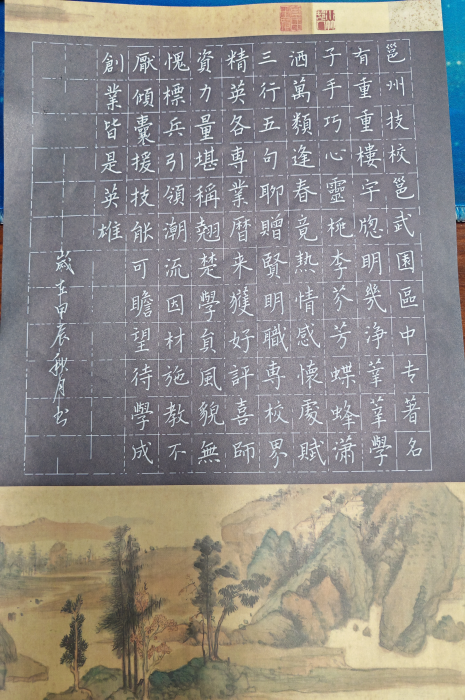 邕州技校邕武園區中专著名
有重重樓宇牕明幾浄莘莘學
子手巧心靈桃李芬芳蝶蜂潇
洒萬類逢春竟热情感懷處賦
三行五句聊贈賢明職専校界
精英各専業曆来獲好評喜師
資力量堪稱翘楚學員風貌無
愧標兵引領潮流因材施教不
厭傾囊援技能可瞻望待學成
創業皆是英堆
歲在甲辰秋月书